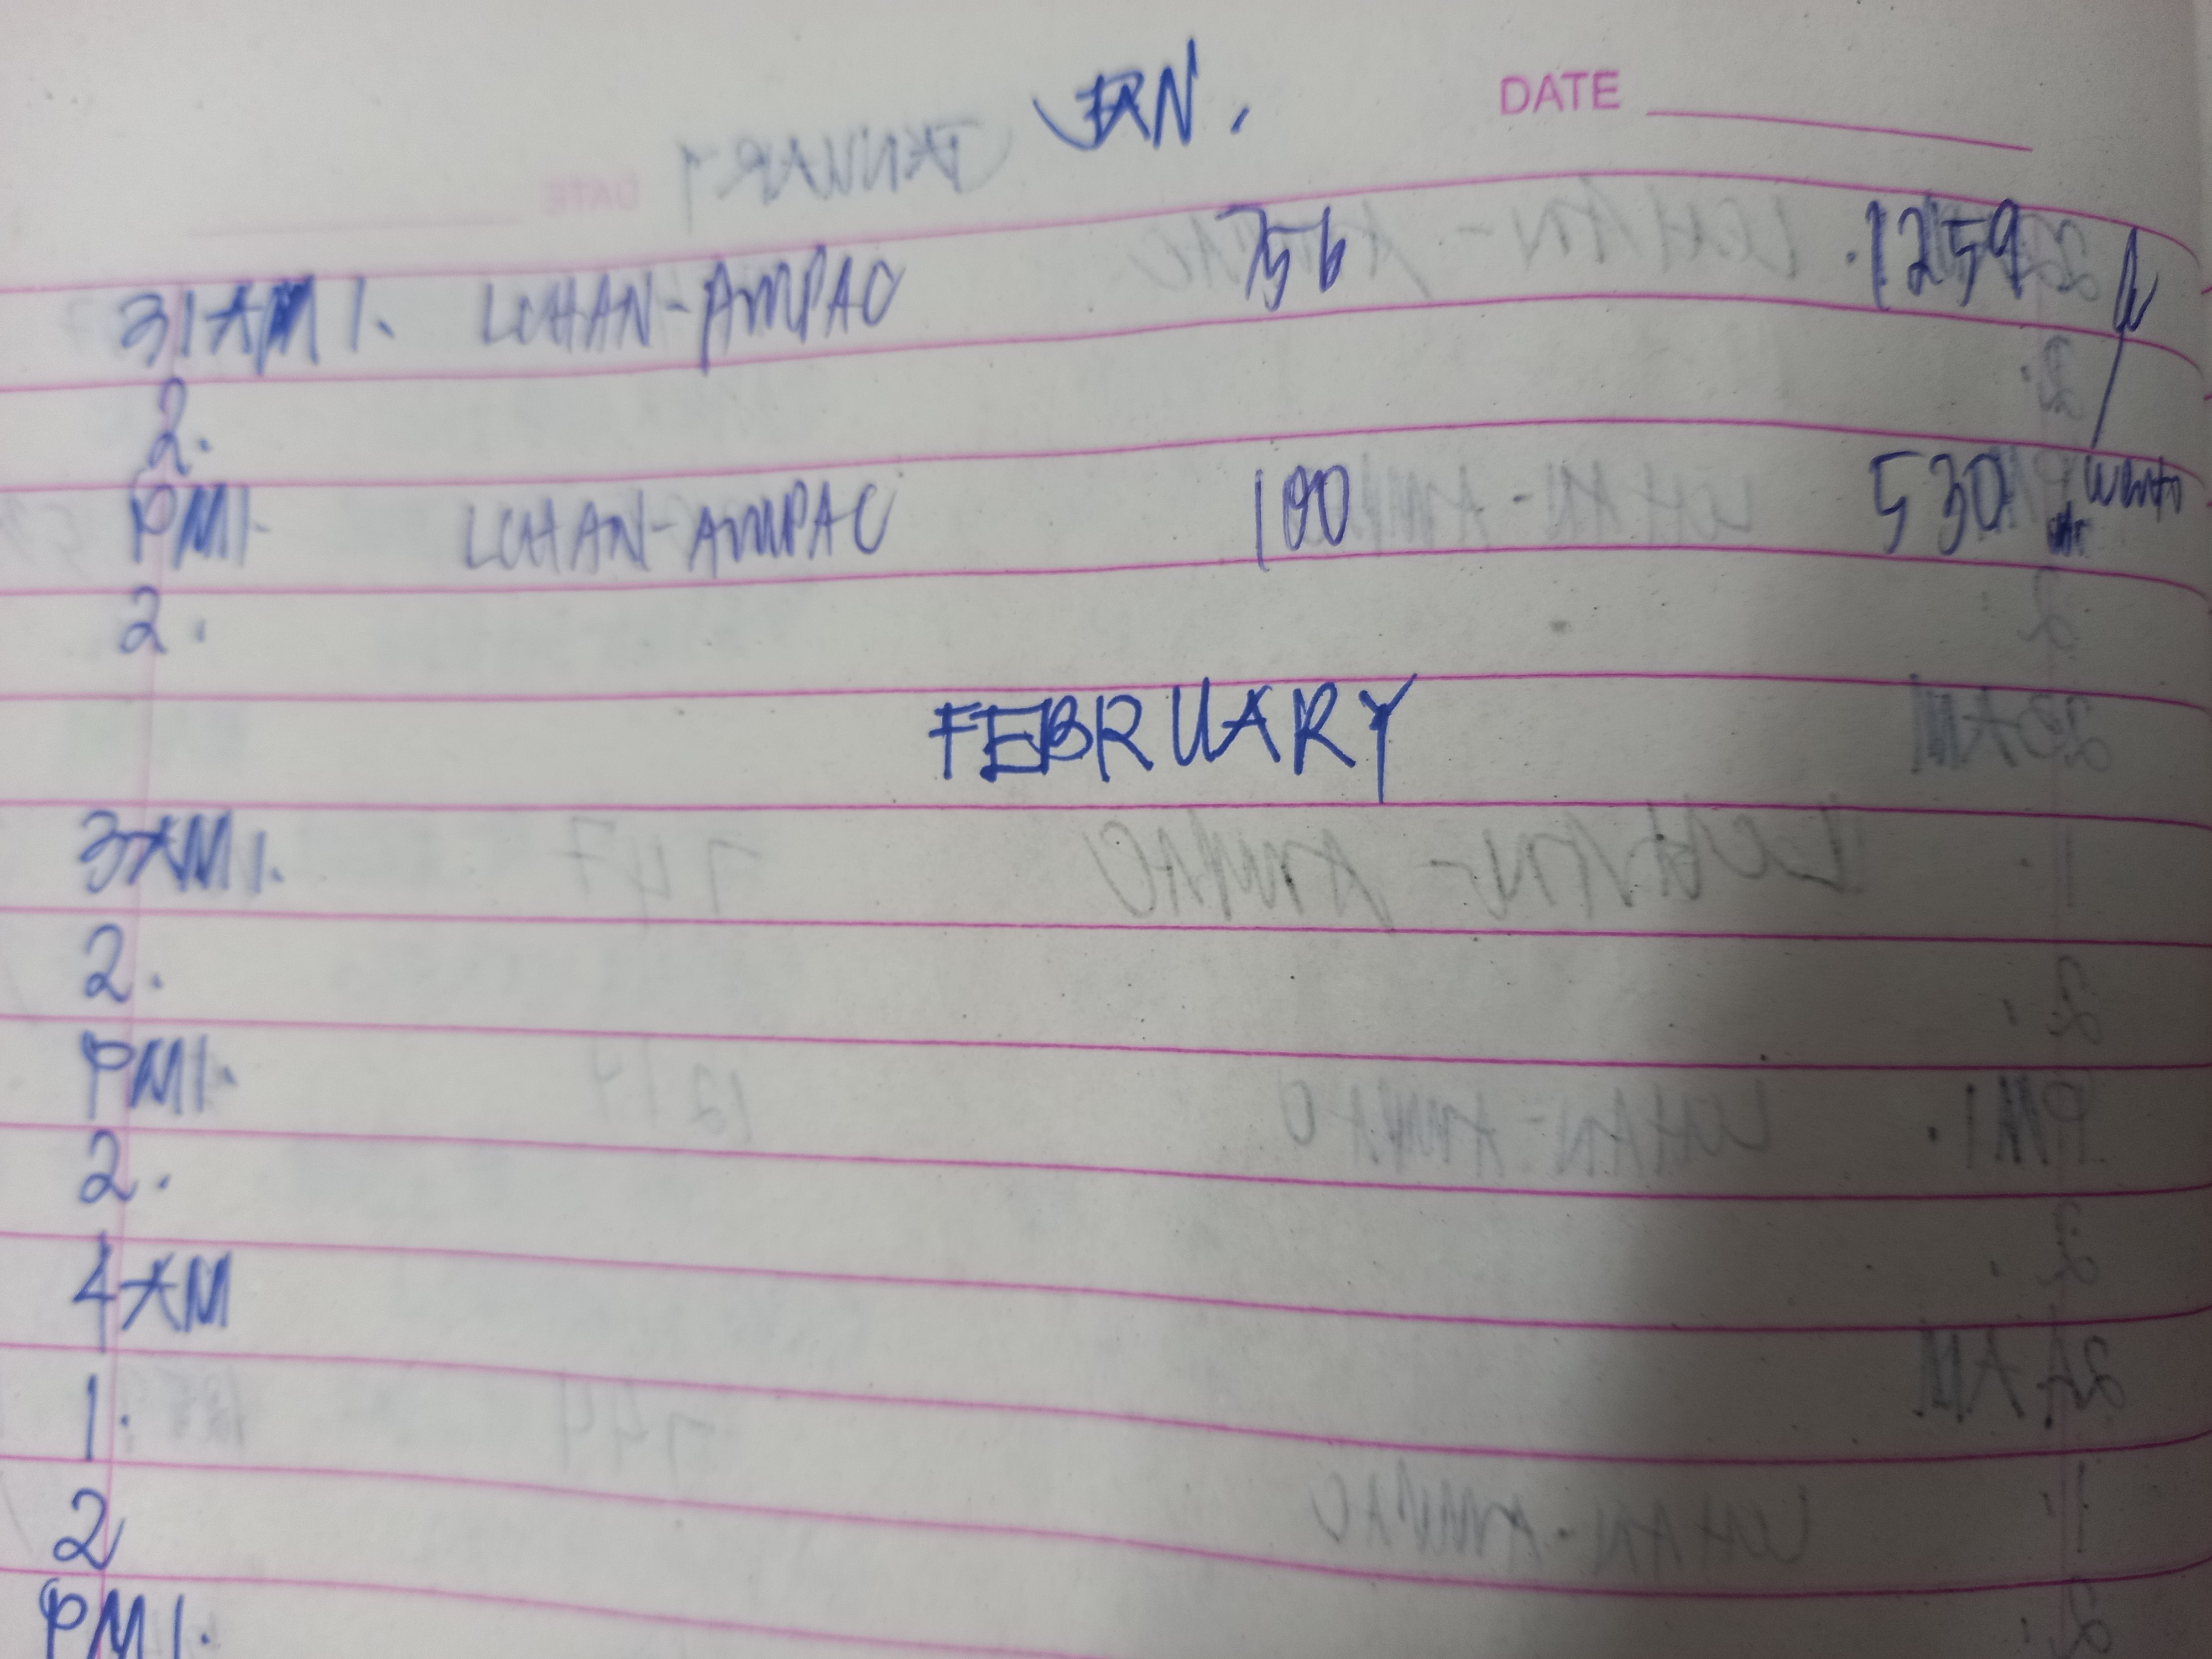 JAN. DATE
31 AM 1. LCHAN-AMPAC 756 1259
2.
PM 1. LCHAN-AMPAC 100 530
2.
FEBRUARY
3 AM 1.
2.
PM 1.
2.
4 AM
1.
2
PM 1.